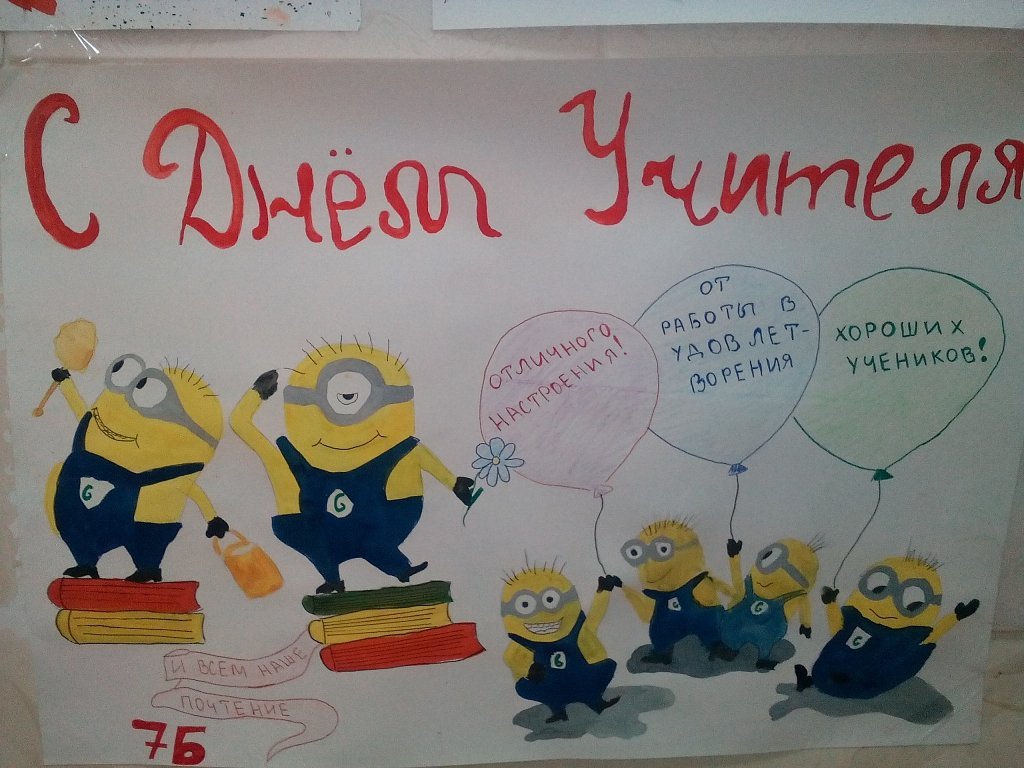 С Днём Учителя
ОТЛИЧНОГО
НАСТРОЕНИЯ!
ОТ
РАБОТЫ В
УДОВЛЕТ-
ВОРЕНИЯ
ХОРОШИХ
УЧЕНИКОВ!
G
G
G
G
G
G
И ВСЕМ НАШЕ
ПОЧТЕНИЕ
7Б